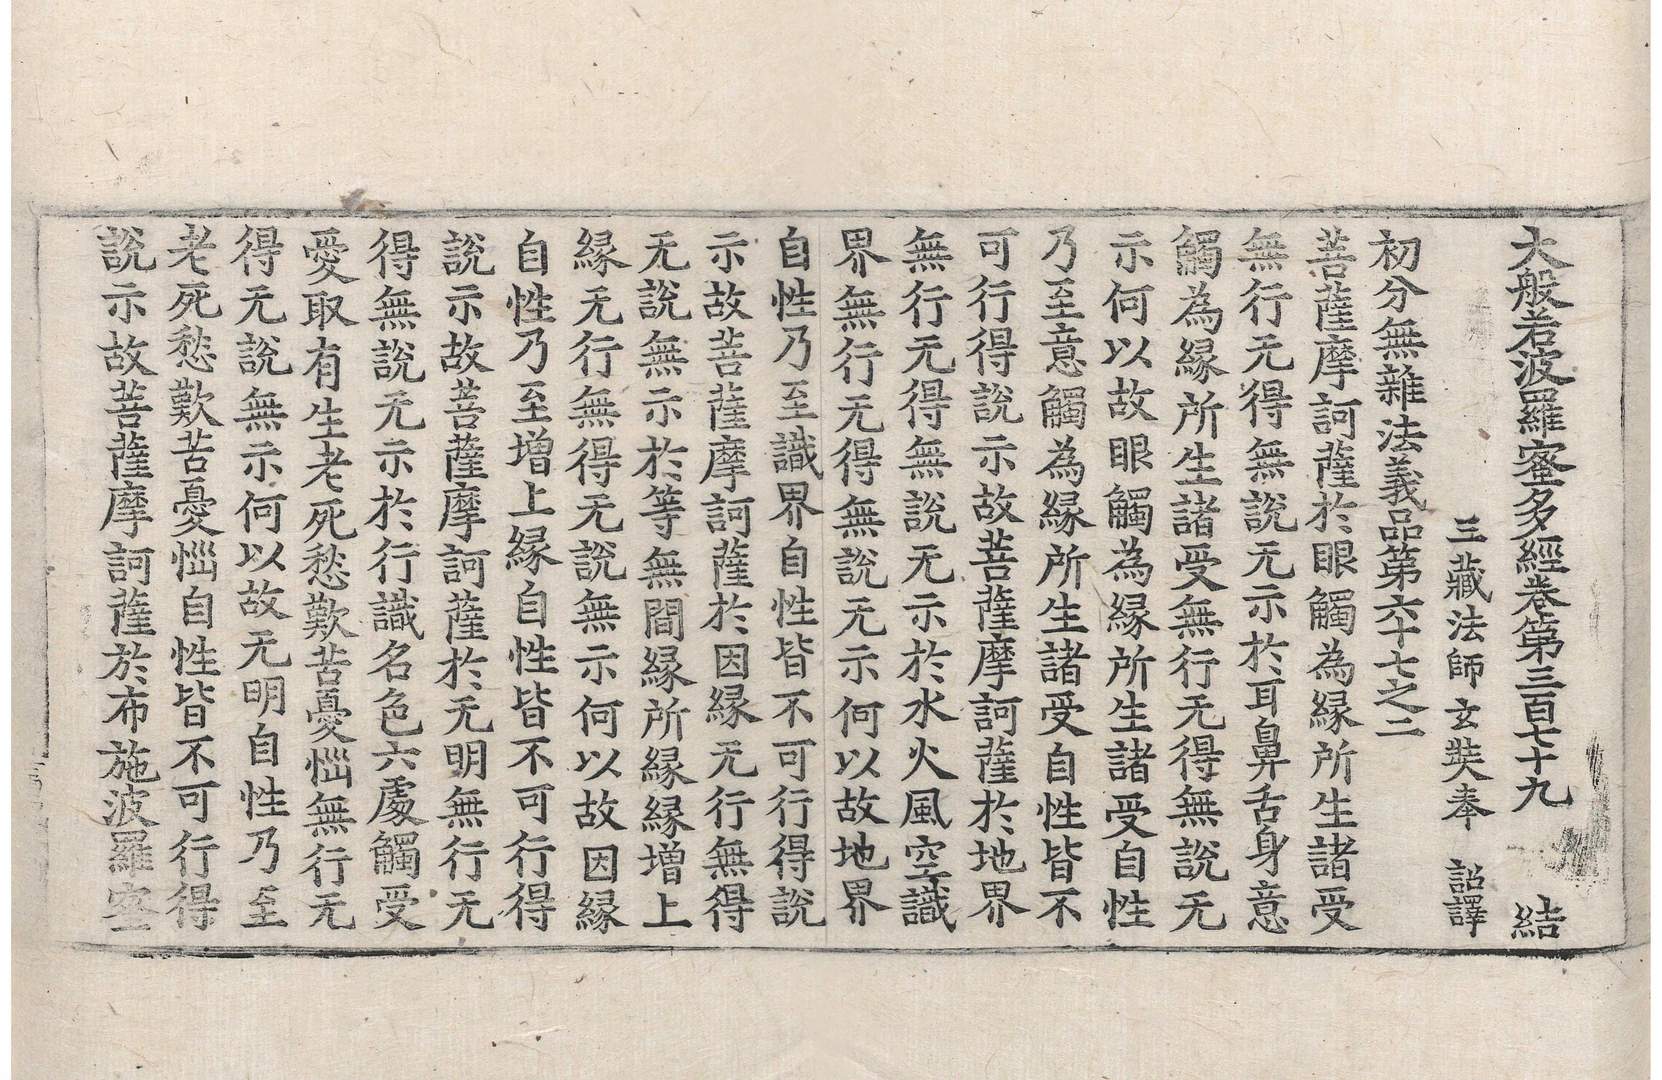 大般若波羅蜜多經卷第三百七十九　結
三藏法師玄奘奉　詔譯
初分無雜法義品第六十七之二
菩薩摩訶薩於眼觸為緣所生諸受
無行无得無說无示於耳鼻舌身意
觸為緣所生諸受無行无得無說无
示何以故眼觸為緣所生諸受自性
乃至意觸為緣所生諸受自性皆不
可行得說示故菩薩摩訶薩於地界
無行无得無說无示於水火風空識
界無行无得無說无示何以故地界
自性乃至識界自性皆不可行得說
示故菩薩摩訶薩於因緣无行無得
无說無示於等無間緣所緣緣增上
緣无行無得无說無示何以故因緣
自性乃至增上緣自性皆不可行得
說示故菩薩摩訶薩於无明無行无
得無說无示於行識名色六處觸受
愛取有生老死愁歎苦憂惱無行无
得无說無示何以故无明自性乃至
老死愁歎苦憂惱自性皆不可行得
說示故菩薩摩訶薩於布施波羅蜜